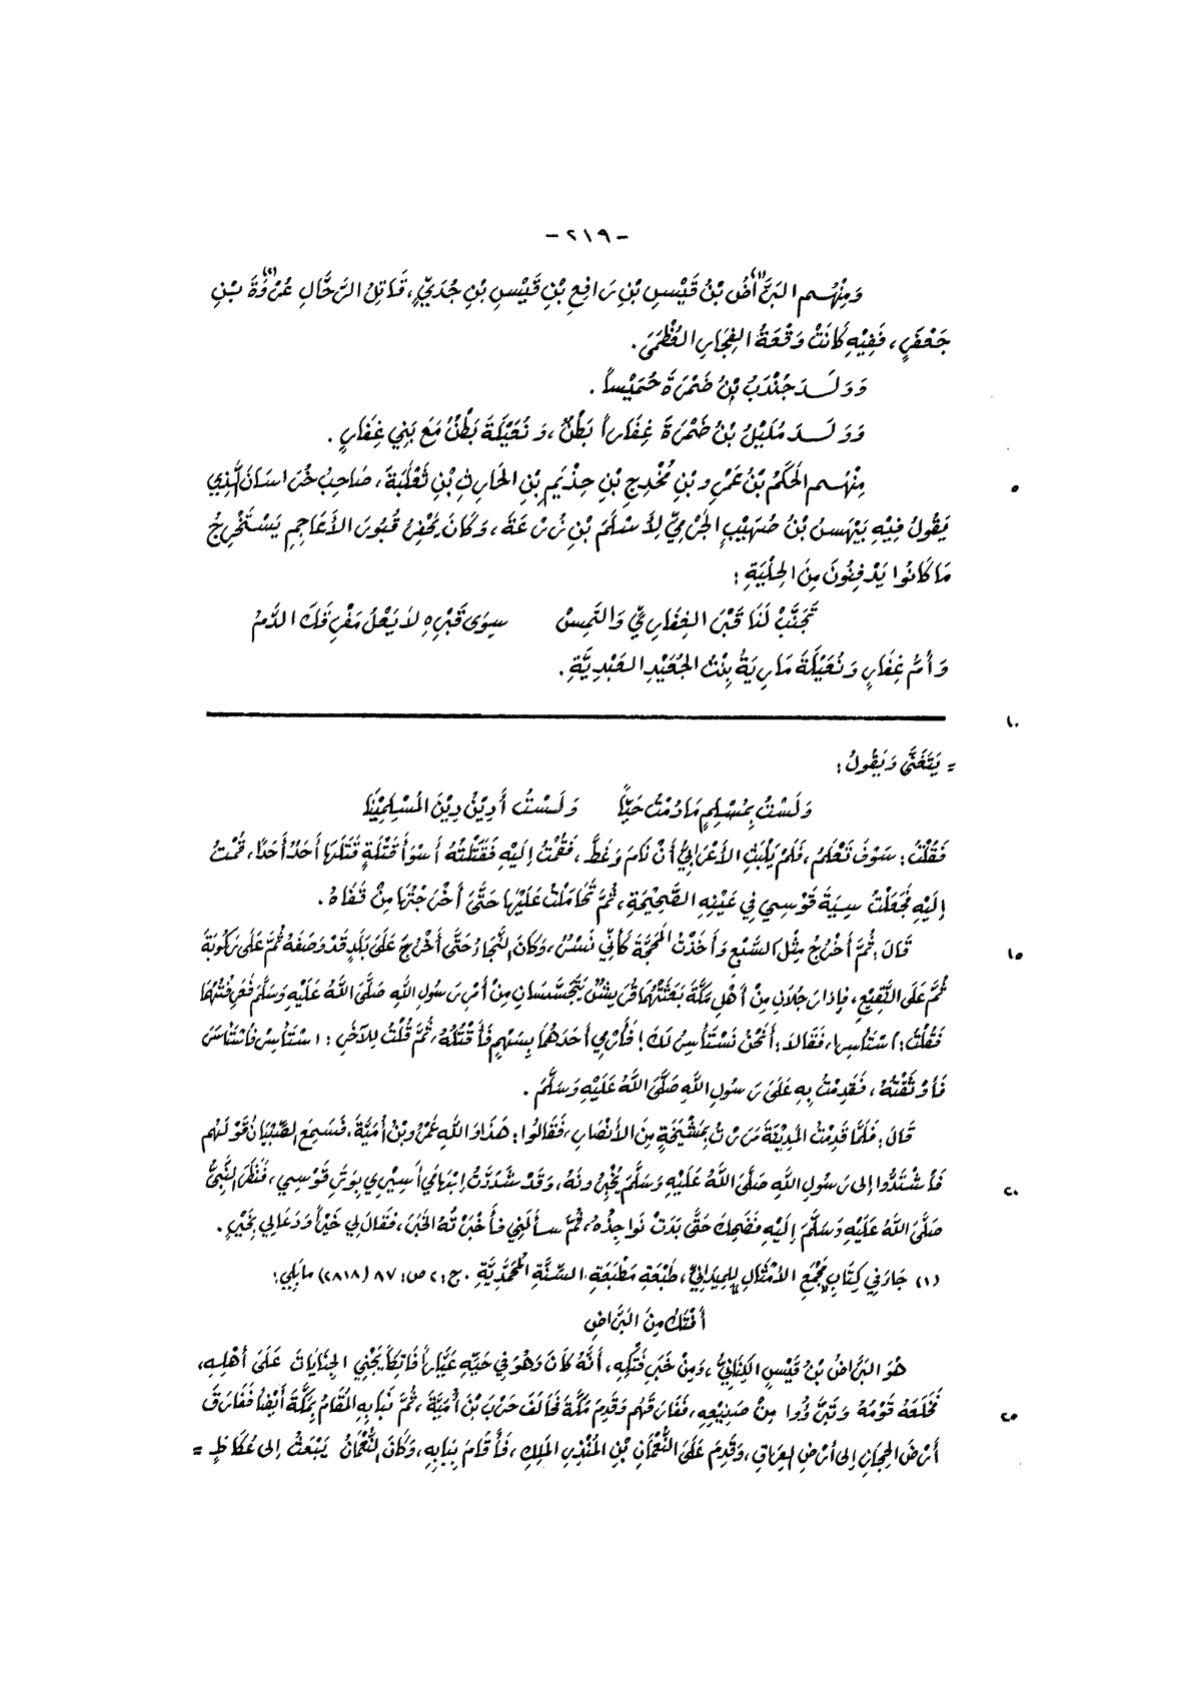 -٢١٩-
وَمِنْهُم البَرَّاضُ(١) بْنُ قَيْسِ بْنِ رَافِعِ بْنِ قَيْسِ بْنِ جُدَيٍّ، قَاتِلُ الرَّحَّالِ عُرْوَةَ(٢) بْنِ
جَعْفَرٍ، فَفِيْهِ كَانَتْ وَقْعَةُ الفِجَارِ العُظْمَىَ.
وَوَلَدَ جُنْدَبُ بْنُ ضَمْرَةَ حُمَيْساً.
وَوَلَدَ مُلَيْلُ بْنُ ضَمْرَةَ غِفَاراً بَطْنٌ، وَنُعَيْلَةَ بَطْنٌ مَعَ بَنِي غِفَارٍ.
مِنْهُم الحَكَمُ بْنُ عَمْرِو بْنِ مُخْدِجِ بْنِ حِذْيَمِ بْنِ الحَارِثِ بْنِ ثَعْلَبَةَ، صَاحِبُ خُرَاسَانَ الَّذِي
٥
يَقُولُ فِيْهِ بَيْهَسُ بْنُ صُهَيْبٍ الجَرْمِيُّ لِأَسْلَمَ بْنِ زُرْعَةَ، وَكَانَ يَحْفِرُ قُبُورَ الأَعَاجِمِ يَسْتَخْرِجُ
مَا كَانُوا يَدْفِنُونَ مِنَ الحِلْيَةِ:
تَجَنَّبْ لَنَا قَبْرَ الغِفَارِيِّ وَالتَمِسْ سِوَى قَبْرِهِ لاَ يَعْلُ مَفْرِقَكَ الدَّمُ
وَأُمُّ غِفَارٍ وَنُعَيْلَةَ مَارِيَةُ بِنْتُ الجُعَيْدِ العَبْدِيَّةِ.
١٠
= يَتَغَنَّى وَيَقُولُ:
وَلَسْتُ بِمُسْلِمٍ مَا دُمْتُ حَيّاً وَلَسْتُ أَدِيْنُ دِيْنَ المُسْلِمِيْنَا
فَقُلْتُ: سَوْفَ تَعْلَمُ، فَلَمْ يَلْبَثِ الأَعْرَابِيُّ أَنْ نَامَ وَغَطَّ، فَقُمْتُ إِلَيْهِ فَقَتَلْتُهُ أَسْوَأَ قَتْلَةٍ قَتَلَهَا أَحَدٌ أَحَدًا، قُمْتُ
إِلَيْهِ فَجَعَلْتُ سِيَةَ قَوْسِي فِي عَيْنِهِ الصَّحِيْحَةِ، ثُمَّ تَحَامَلْتُ عَلَيْهَا حَتَّى أَخْرَجْتُهَا مِنْ قَفَاهُ.
قَالَ: ثُمَّ أَخْرُجُ مِثْلَ السَّبُعِ وَأَخَذْتُ المَحَجَّةَ كَأَنِّي نَسْرٌ، وَكَانَ النَّجَاءُ حَتَّى أَخْرُجَ عَلَى بَلَدٍ قَدْ وَصَفَهُ ثُمَّ عَلَى رَكُوبَةَ
١٥
ثُمَّ عَلَى النَّقِيْعِ، فَإِذَا رَجُلاَنِ مِنْ أَهْلِ مَكَّةَ بَعَثَتْهُمَا قُرَيْشٌ يَتَجَسَّسَانِ مِنْ أَمْرِ رَسُولِ اللهِ صَلَّى اللهُ عَلَيْهِ وَسَلَّمَ فَعَرَفْتُهُمَا
فَقُلْتُ: اسْتَأْسِرَا، فَقَالاَ: أَنَحْنُ نَسْتَأْسِرُ لَكَ! فَأَرْمِي أَحَدَهُمَا بِسَهْمٍ فَأَقْتُلُهُ، ثُمَّ قُلْتُ لِلآخَرِ: اسْتَأْسِرْ فَاسْتَأْسَرَ
فَأَوْثَقْتُهُ، فَقَدِمْتُ بِهِ عَلَى رَسُولِ اللهِ صَلَّى اللهُ عَلَيْهِ وَسَلَّمَ.
قَالَ: فَلَمَّا قَدِمْتُ المَدِيْنَةَ مَرَرْتُ بِمَشْيَخَةٍ مِنَ الأَنْصَارِ، فَقَالُوا: هَذَا وَاللهِ عَمْرُو بْنُ أُمَيَّةَ، فَسَمِعَ الصِّبْيَانُ قَوْلَهُم
فَاشْتَدُّوا إِلَى رَسُولِ اللهِ صَلَّى اللهُ عَلَيْهِ وَسَلَّمَ يُخْبِرُونَهُ، وَقَدْ شَدَدْتُ إِبْهَامَي أَسِيْرِي بِوَتَرِ قَوْسِي، فَنَظَرَ النَّبِيُّ
٢٠
صَلَّى اللهُ عَلَيْهِ وَسَلَّمَ إِلَيْهِ فَضَحِكَ حَتَّى بَدَتْ نَوَاجِذُهُ، ثُمَّ سَأَلَنِي فَأَخْبَرْتُهُ الخَبَرَ، فَقَالَ لِي خَيْراً وَدَعَا لِي بِخَيْرٍ.
(١) جَاءَ فِي كِتَابِ مَجْمَعِ الأَمْثَالِ لِلمِيدَانِيِّ، طَبْعَةِ مَطْبَعَةِ السُّنَّةِ المُحَمَّدِيَّةِ. ج: ٢ ص: ٨٧ (٢٨١٨) مَا يَلِي:
أَفْتَكُ مِنَ البَرَّاضِ
هُوَ البَرَّاضُ بْنُ قَيْسٍ الكِنَانِيُّ، وَمِنْ خَبَرِ فَتْكِهِ، أَنَّهُ كَانَ وَهُوَ فِي حَيِّهِ عَيَّاراً فَاتِكاً يَجْنِي الجِنَايَاتِ عَلَى أَهْلِهِ،
فَخَلَعَهُ قَوْمُهُ وَتَبَرَّؤُوا مِنْ صَنِيْعِهِ، فَفَارَقَهُم وَقَدِمَ مَكَّةَ فَحَالَفَ حَرْبَ بْنَ أُمَيَّةَ، ثُمَّ نَبَا بِهِ المُقَامُ بِمَكَّةَ أَيْضاً فَفَارَقَ
٢٥
أَرْضَ الحِجَازِ إِلَى أَرْضِ العِرَاقِ، وَقَدِمَ عَلَى النُّعْمَانِ بْنِ المُنْذِرِ المَلِكِ، فَأَقَامَ بِبَابِهِ، وَكَانَ النُّعْمَانُ يَبْعَثُ إِلَى عُكَاظٍ =